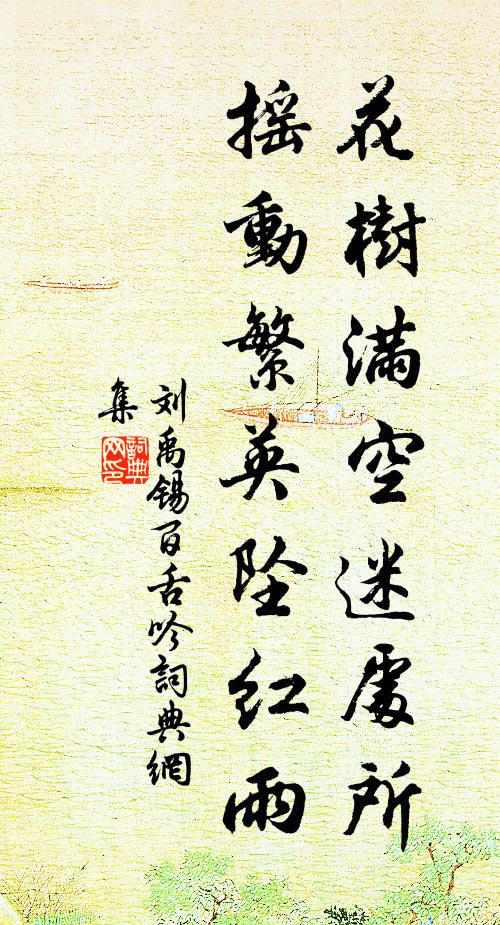 花樹满空迷處所
摇動繁英坠红雨
刘禹锡百舌吟詞典網
集
詞典
网印